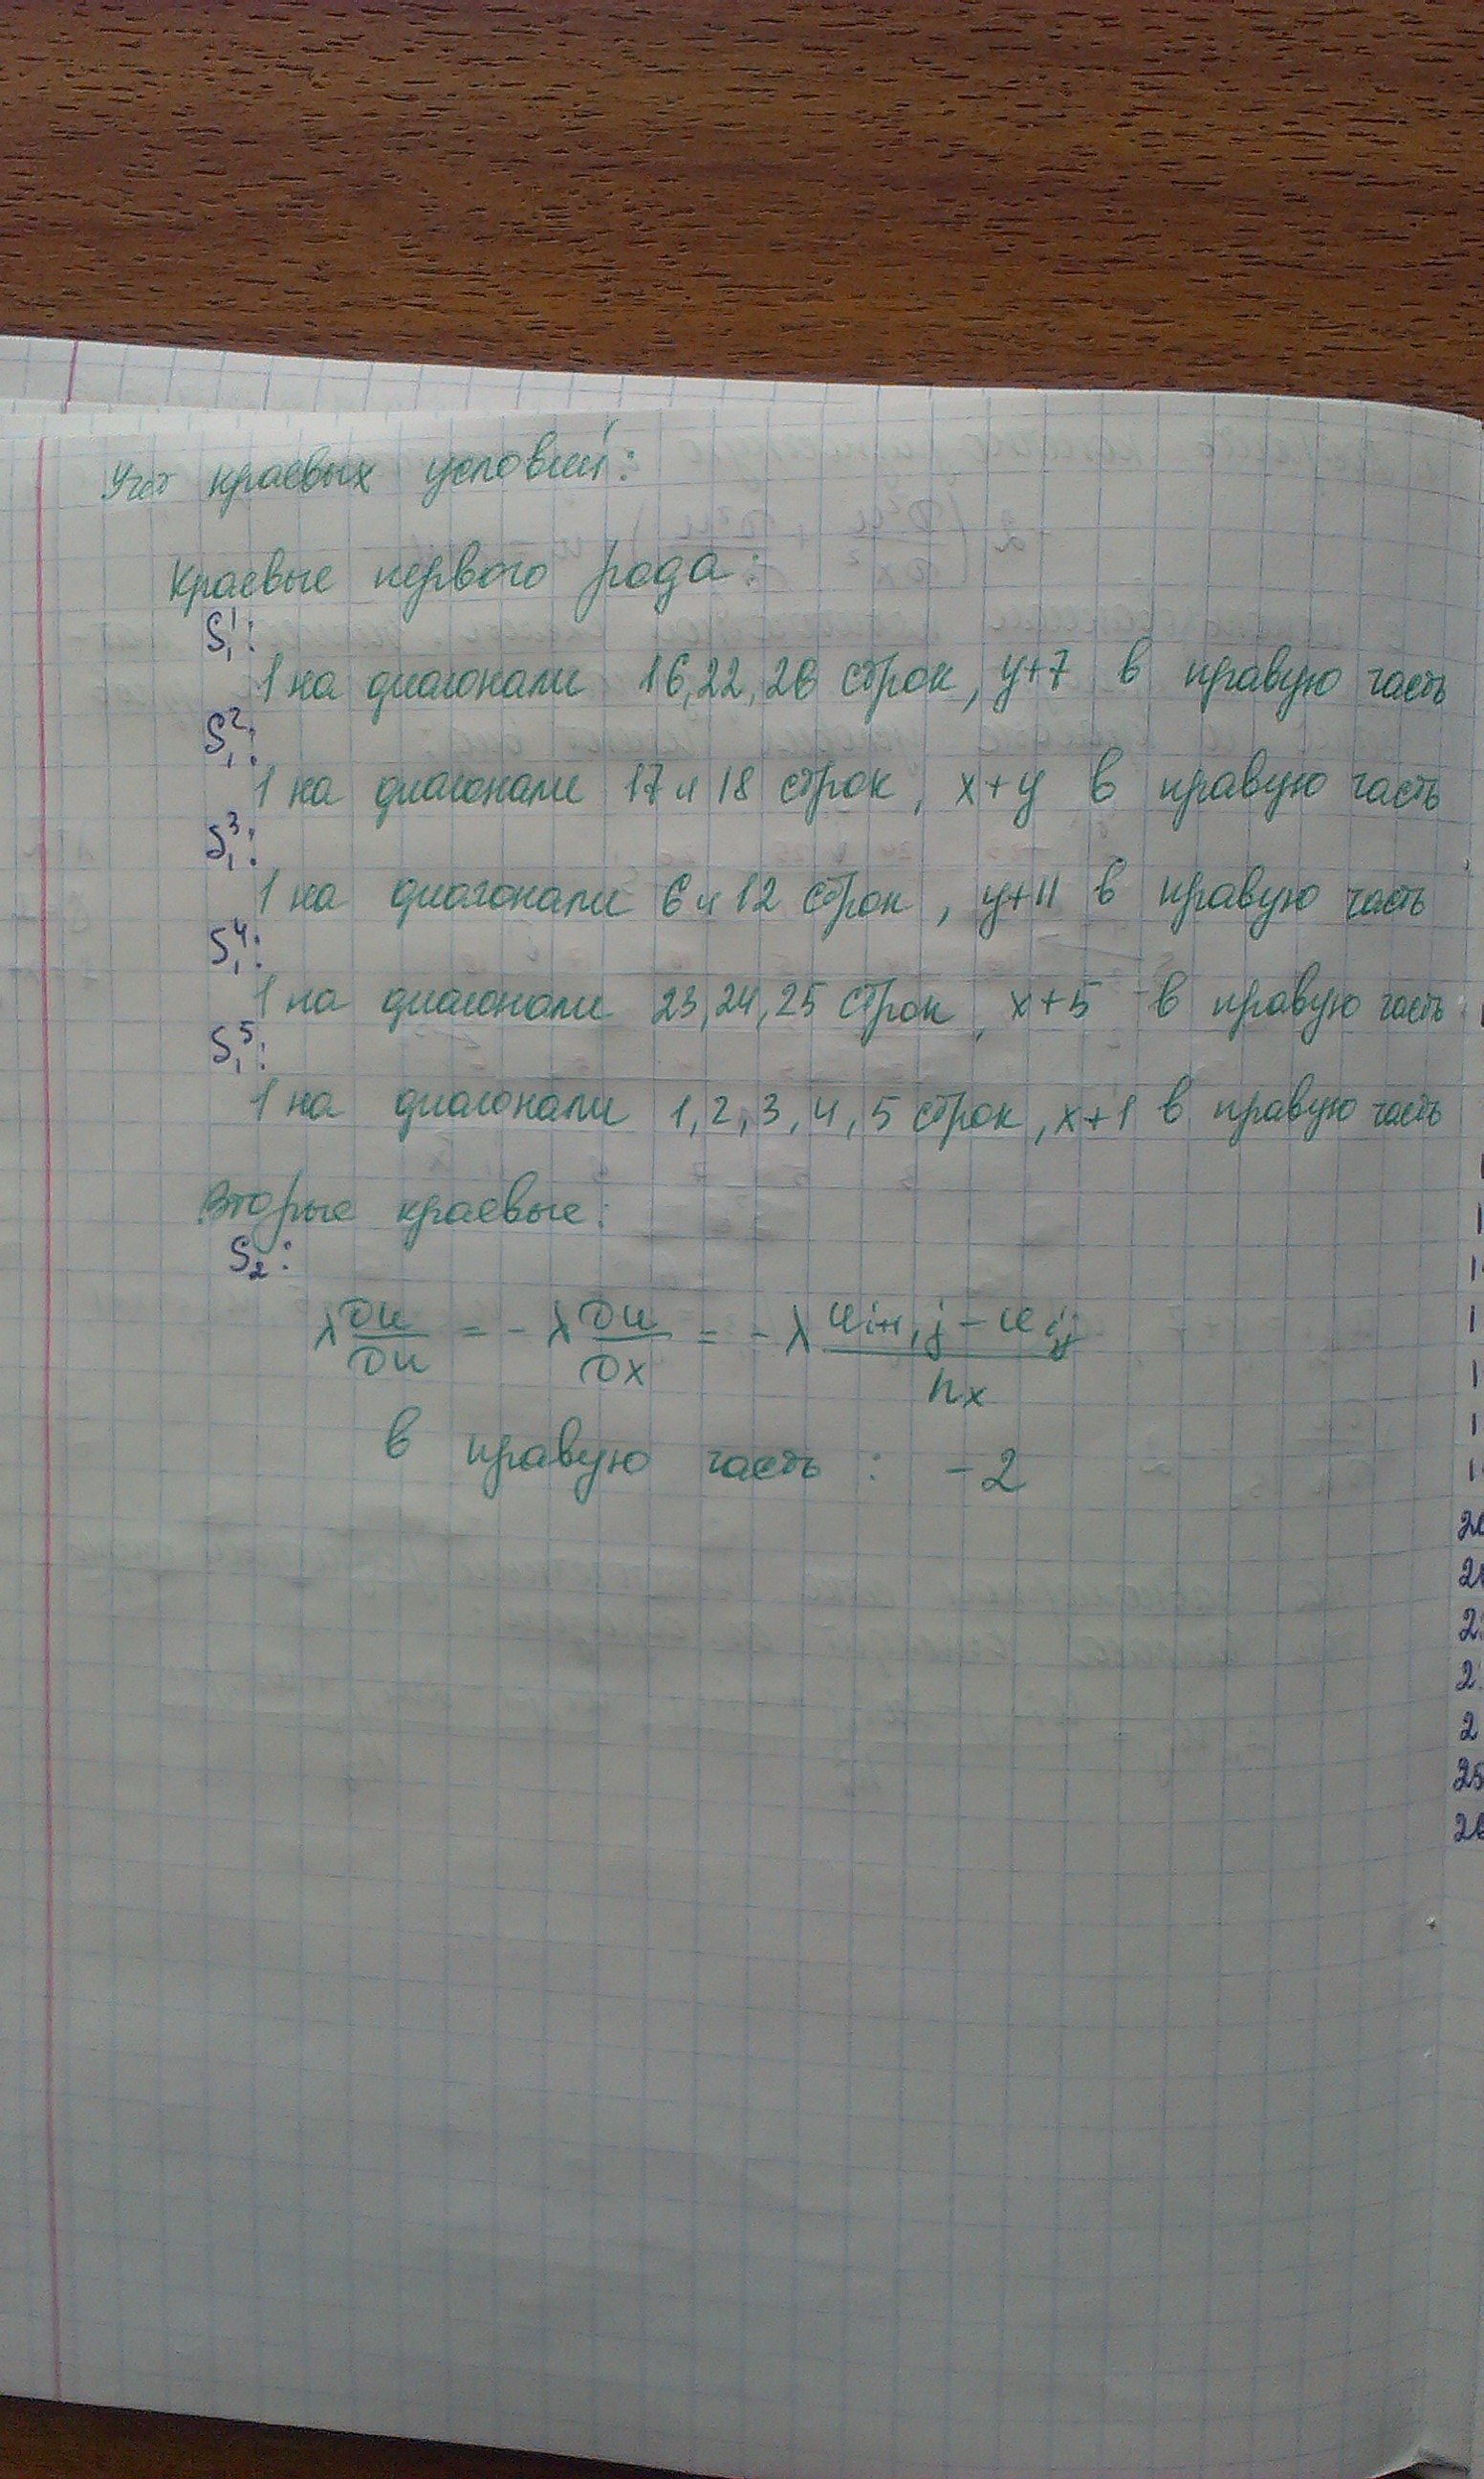 Учет краевых условий:
Краевые первого рода:
S₁¹:
1 на диагонали 16, 22, 26 строк, y+7 в правую часть
S₁²:
1 на диагонали 17 и 18 строк, x+y в правую часть
S₁³:
1 на диагонали 6 и 12 строк, y+11 в правую часть
S₁⁴:
1 на диагонали 23, 24, 25 строк, x+5 в правую часть
S₁⁵:
1 на диагонали 1, 2, 3, 4, 5 строк, x+1 в правую часть
Вторые краевые:
S₂:
λ ∂u/∂n = - λ ∂u/∂x = - λ (u i+1, j - u i,j)/hx
в правую часть: -2
25